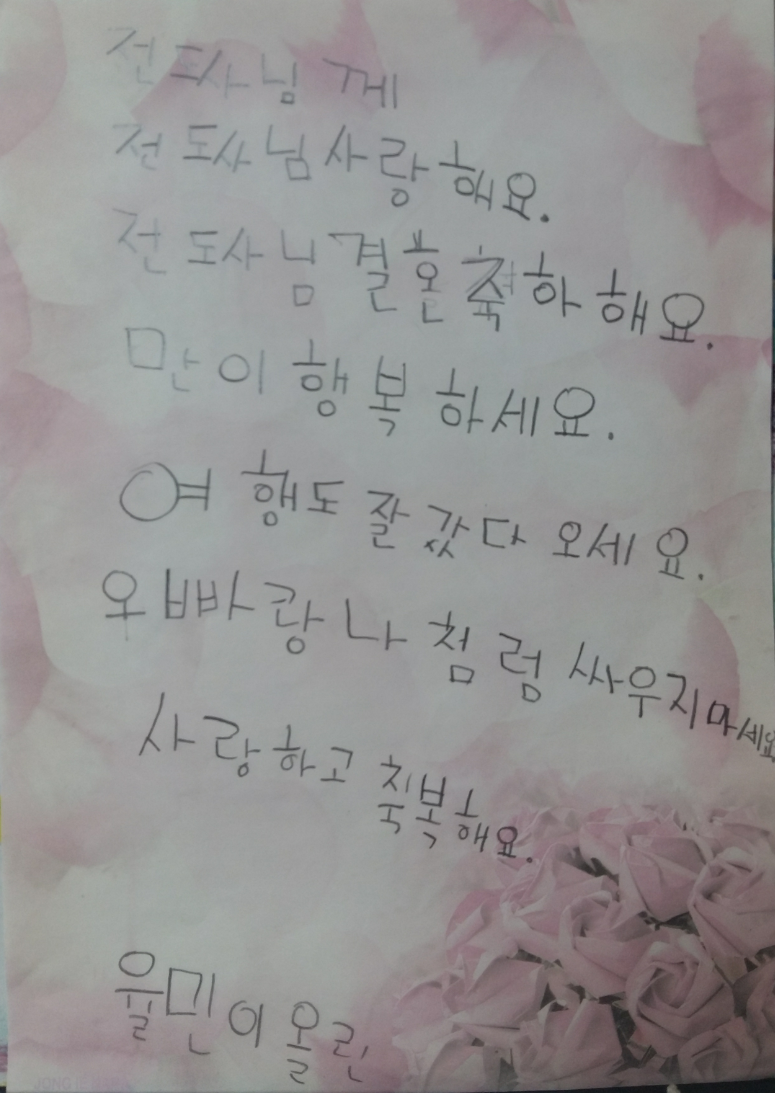 전도사님께
전도사님사랑해요.
전도사님결혼축하해요.
만이행복하세요.
여행도잘갔다오세요.
오빠랑나첨럼싸우지마세요
사랑하고축복해요.
율민이올린